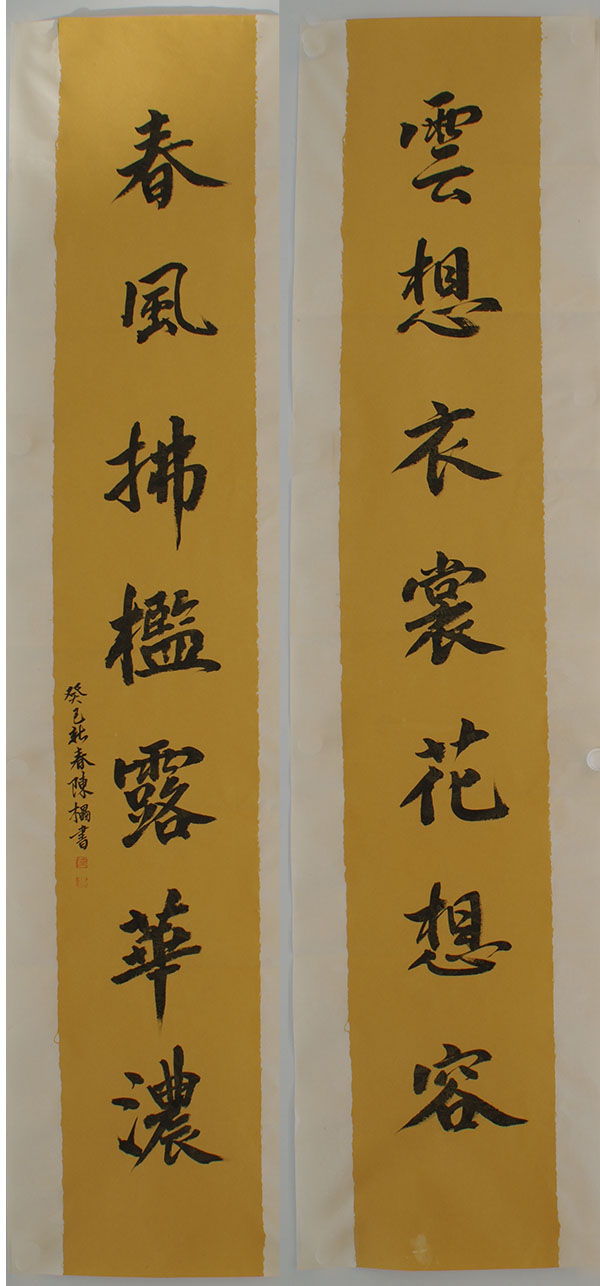 雲想衣裳花想容
春風拂檻露華濃
癸巳新春陳榻書